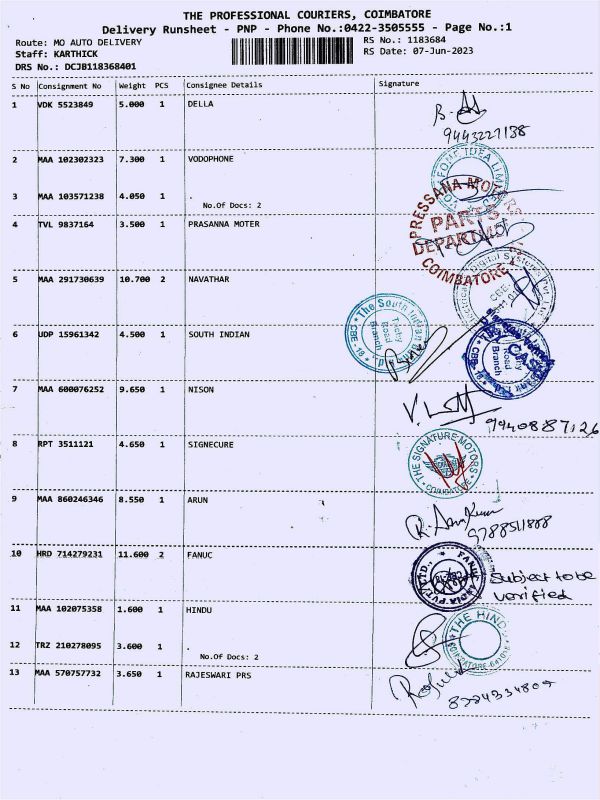 THE PROFESSIONAL COURIERS, COIMBATORE
Delivery Runsheet - PNP - Phone No.:0422-3505555 - Page No.:1
Route: MO AUTO DELIVERY RS No.: 1183684
Staff: KARTHICK RS Date: 07-Jun-2023
DRS No.: DCJB118368401
S No Consignment No Weight PCS Consignee Details Signature
1 VDK 5523849 5.000 1 DELLA
9443227138
2 MAA 102302323 7.300 1 VODOPHONE
3 MAA 103571238 4.050 1 No.Of Docs: 2
4 TVL 9837164 3.500 1 PRASANNA MOTER
PRESSANA MOTORS
PARTS
DEPARTMENT
COIMBATORE
5 MAA 291730639 10.700 2 NAVATHAR
6 UDP 15961342 4.500 1 SOUTH INDIAN
The South Indian
Trichy
Road
Branch
CBE - 18
7 MAA 600076252 9.650 1 NISON
9940887126
8 RPT 3511121 4.650 1 SIGNECURE
THE SIGNATURE MOTORS
COIMBATORE
9 MAA 860246346 8.550 1 ARUN
R. Arun Kumar
9788511888
10 HRD 714279231 11.600 2 FANUC
FANUC INDIA PVT. LTD.
Subject to be
verified
11 MAA 102075358 1.600 1 HINDU
THE HINDU
12 TRZ 210278095 3.600 1 No.Of Docs: 2
13 MAA 570757732 3.650 1 RAJESWARI PRS